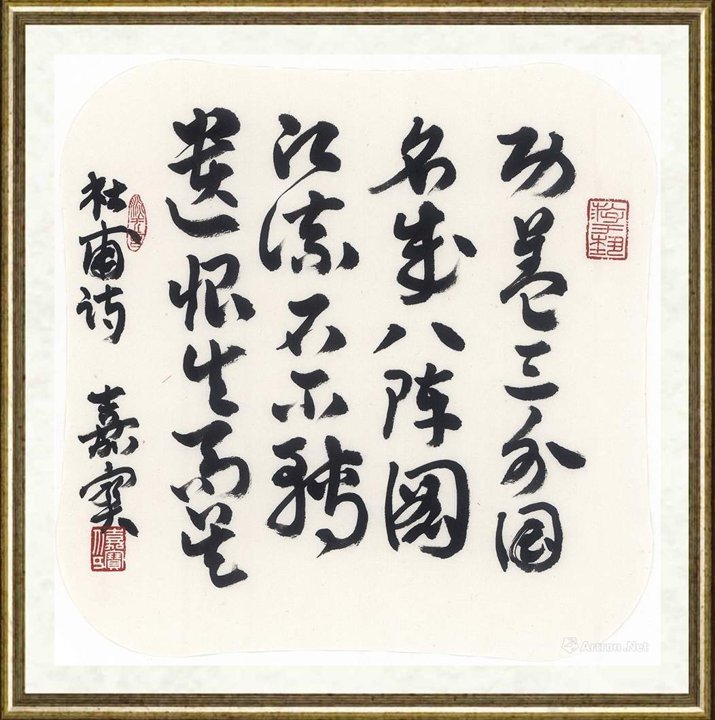 功盖三分国
名成八阵图
江流石不轉
遺恨失吞吴
杜甫诗 嘉实
Artron.Net